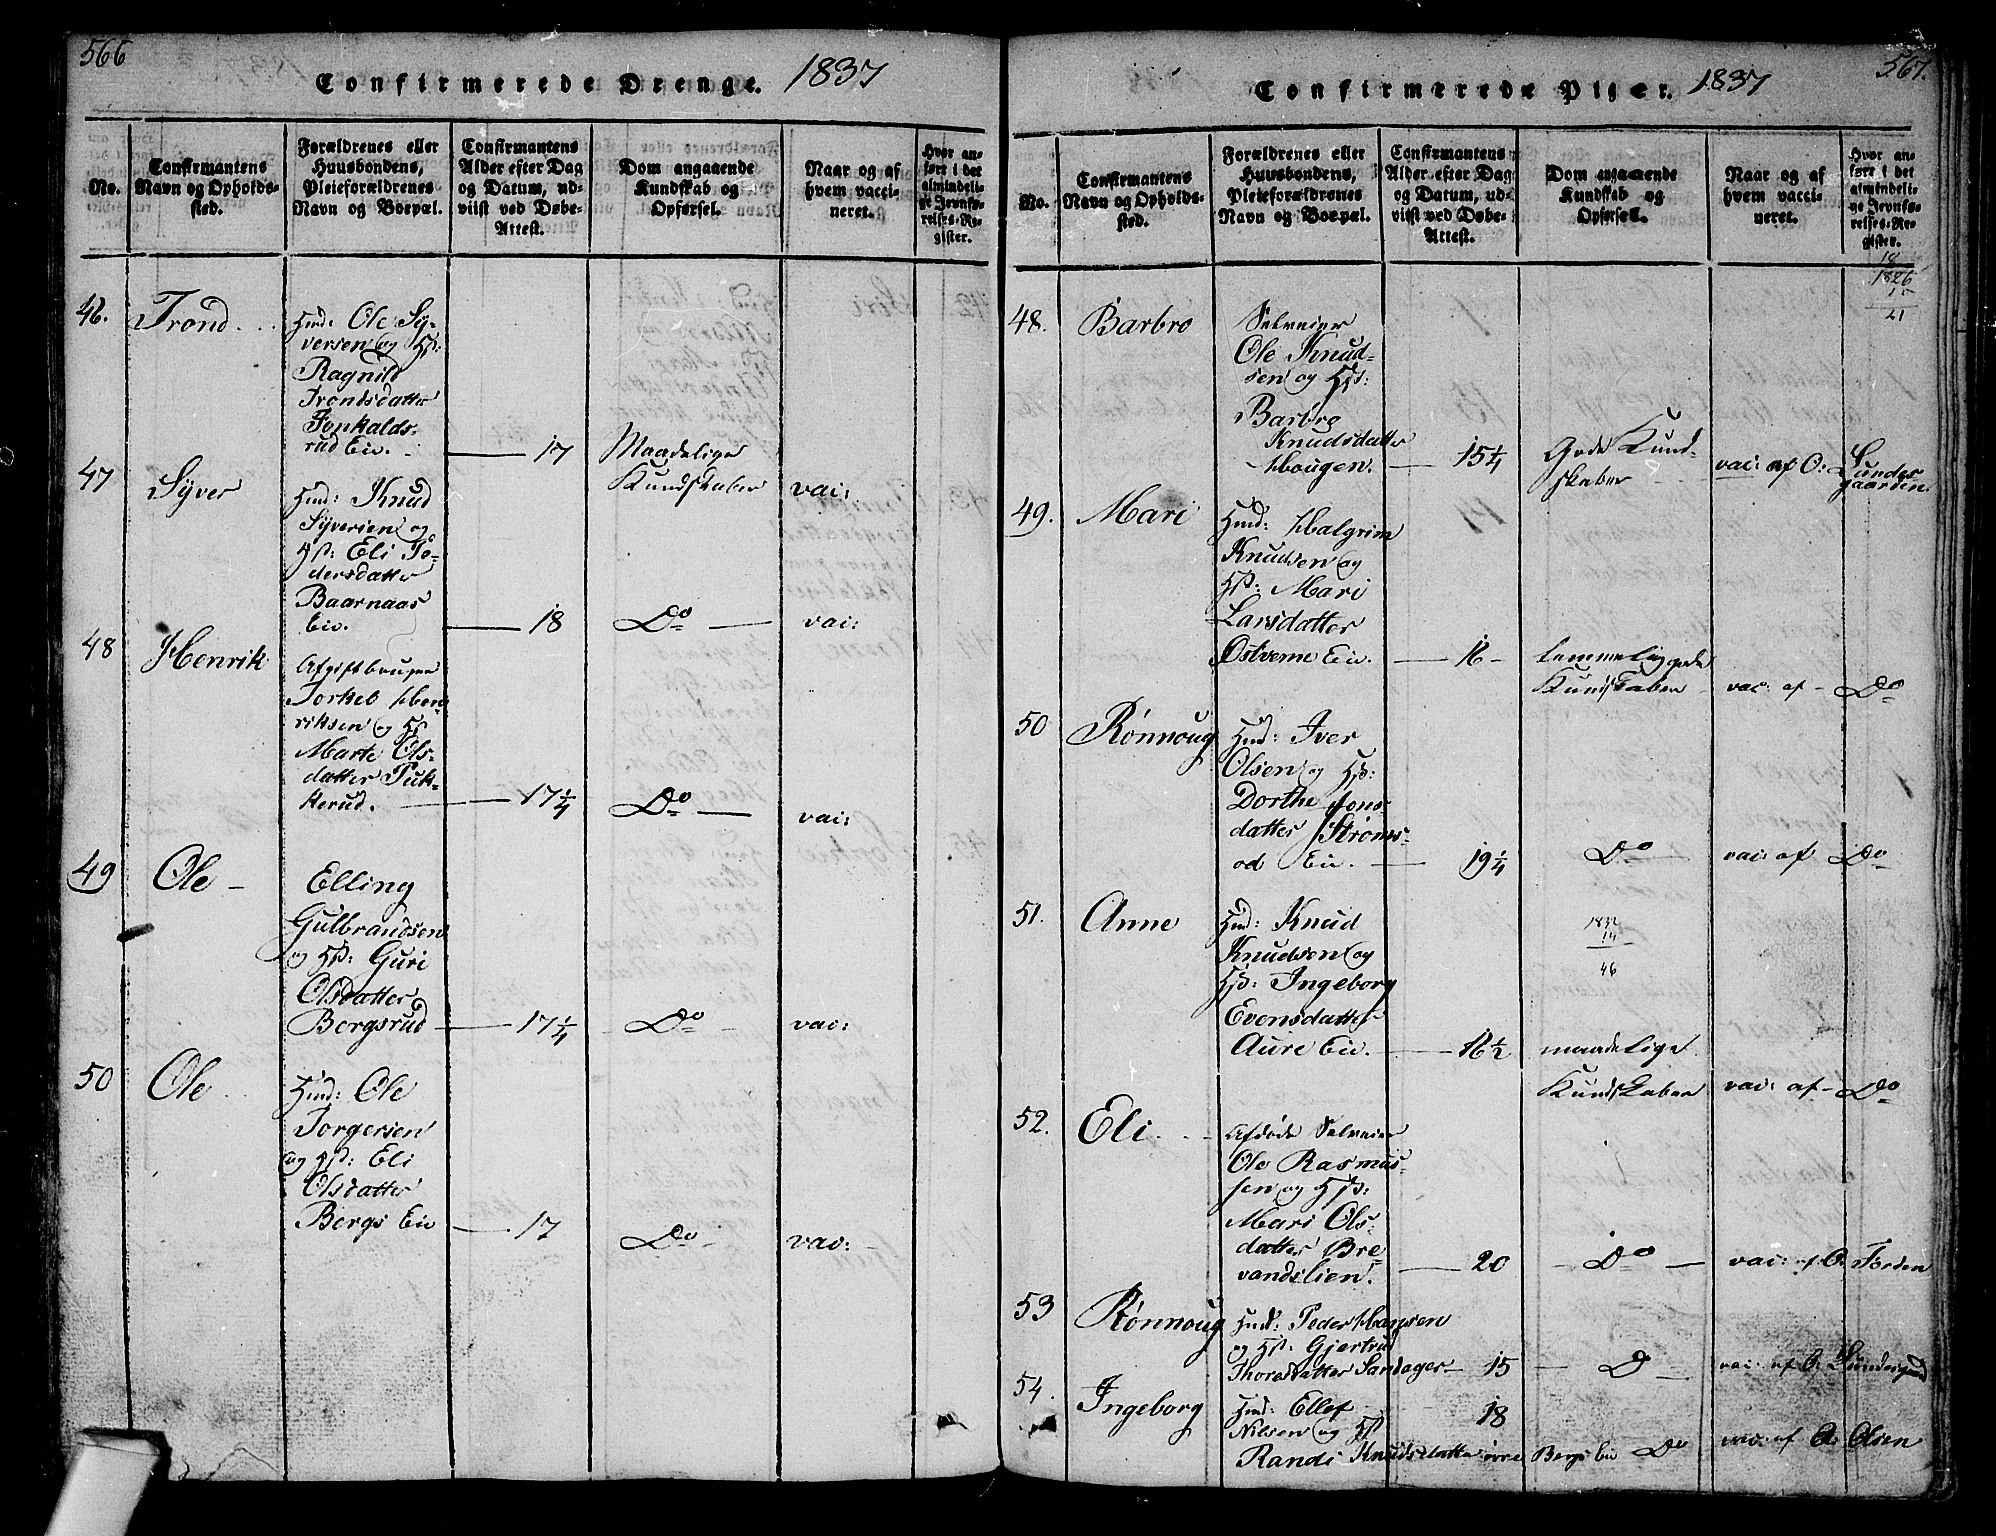 566
Confirmerede Drenge. 1837
No.
Confirmantens
Navn og Opholds-
sted.
Forældrenes eller
Huusbondens,
Pleieforældrenes
Navn og Boepæl.
Confirmantens
Alder efter Dag
og Datum, ud-
viist ved Døbe-
Attest.
Dom angaaende
Kundskab og
Opførsel.
Naar og af
hvem vacci-
neret.
Hvor an-
ført i det
almindeli-
ge Jevnfø-
relses-Re-
gister.
46.
Trond
Hmd: Ole Sy-
versen og Hst:
Ragnild
Trondsdatter
rud Eie.
17
Maadelige
Kundskaber
vac:
47
Syver
Hmd: Knud
Syversen og
Hst: Eli To-
dersdatter
Baarnaas
Eie.
18
Do
vac:
48
Henrik
Afgiftbruger
Torkel Hen-
riksen og Hst
Marte Ols-
datter Puk-
kerud.
17 1/4
Do
vac:
49
Ole
Elling
Gulbrandsen
og Hst: Guri
Olsdatter
Bergsrud
17 1/4
Do
vac:
50
Ole
Hmd: Ole
Torgersen
og Hst: Eli
Olsdatter
Bergs Eie
17
Do
vac:
567.
Confirmerede Piger. 1837
No.
Confirmantens
Navn og Opholds-
sted.
Forældrenes eller
Huusbondens,
Pleieforældrenes
Navn og Boepæl.
Confirmantens
Alder efter Dag
og Datum, ud-
viist ved Døbe-
Attest.
Dom angaaende
Kundskab og
Opførsel.
Naar og af
hvem vacci-
neret.
Hvor an-
ført i det
almindeli-
ge Jevnfø-
relses-Re-
gister.
18
1826
15
21
48.
Barbro
Selveier
Ole Knud-
sen og Hst:
Barbro
Knudsdatter
Hougen.
15 1/4
Gode Kund-
skaber
vac: af O: Lundes
gaarden.
49.
Mari
Hmd: Halgrim
Knudsen og
Hst: Mari
Larsdatter
Østverne Eie.
16
temmelig gode
Kundskaber
vac: af Do
50
Rønnoug
Hmd: Iver
Olsen og Hst:
Dorthe Jons
datter Strøms-
od Eie.
19 1/4
Do
vac: af Do
51.
Anne
Hmd: Knud
Knudsen og
Hst: Ingeborg
Evensdatter
Aure Eie.
16 1/2
1832
14
46
maadelige
Kundskaber
vac: af Do
52.
Eli
Afdøde Selveier
Ole Rasmus-
sen og Hst:
Mari Ols-
datter Bre-
vandslien.
20
Do
vac: af O: Torden
53
Rønnoug
Hmd: Peder Hansen
og Hst: Gjertrud
Thoresdatter Sandager
15
D
vac: af O:
54.
Ingeborg
Hmd: Ellef
Nilsen og Hst
Randi Knudsdatter øvre Bergs Eie
18
Do
vac: af O: Olsen